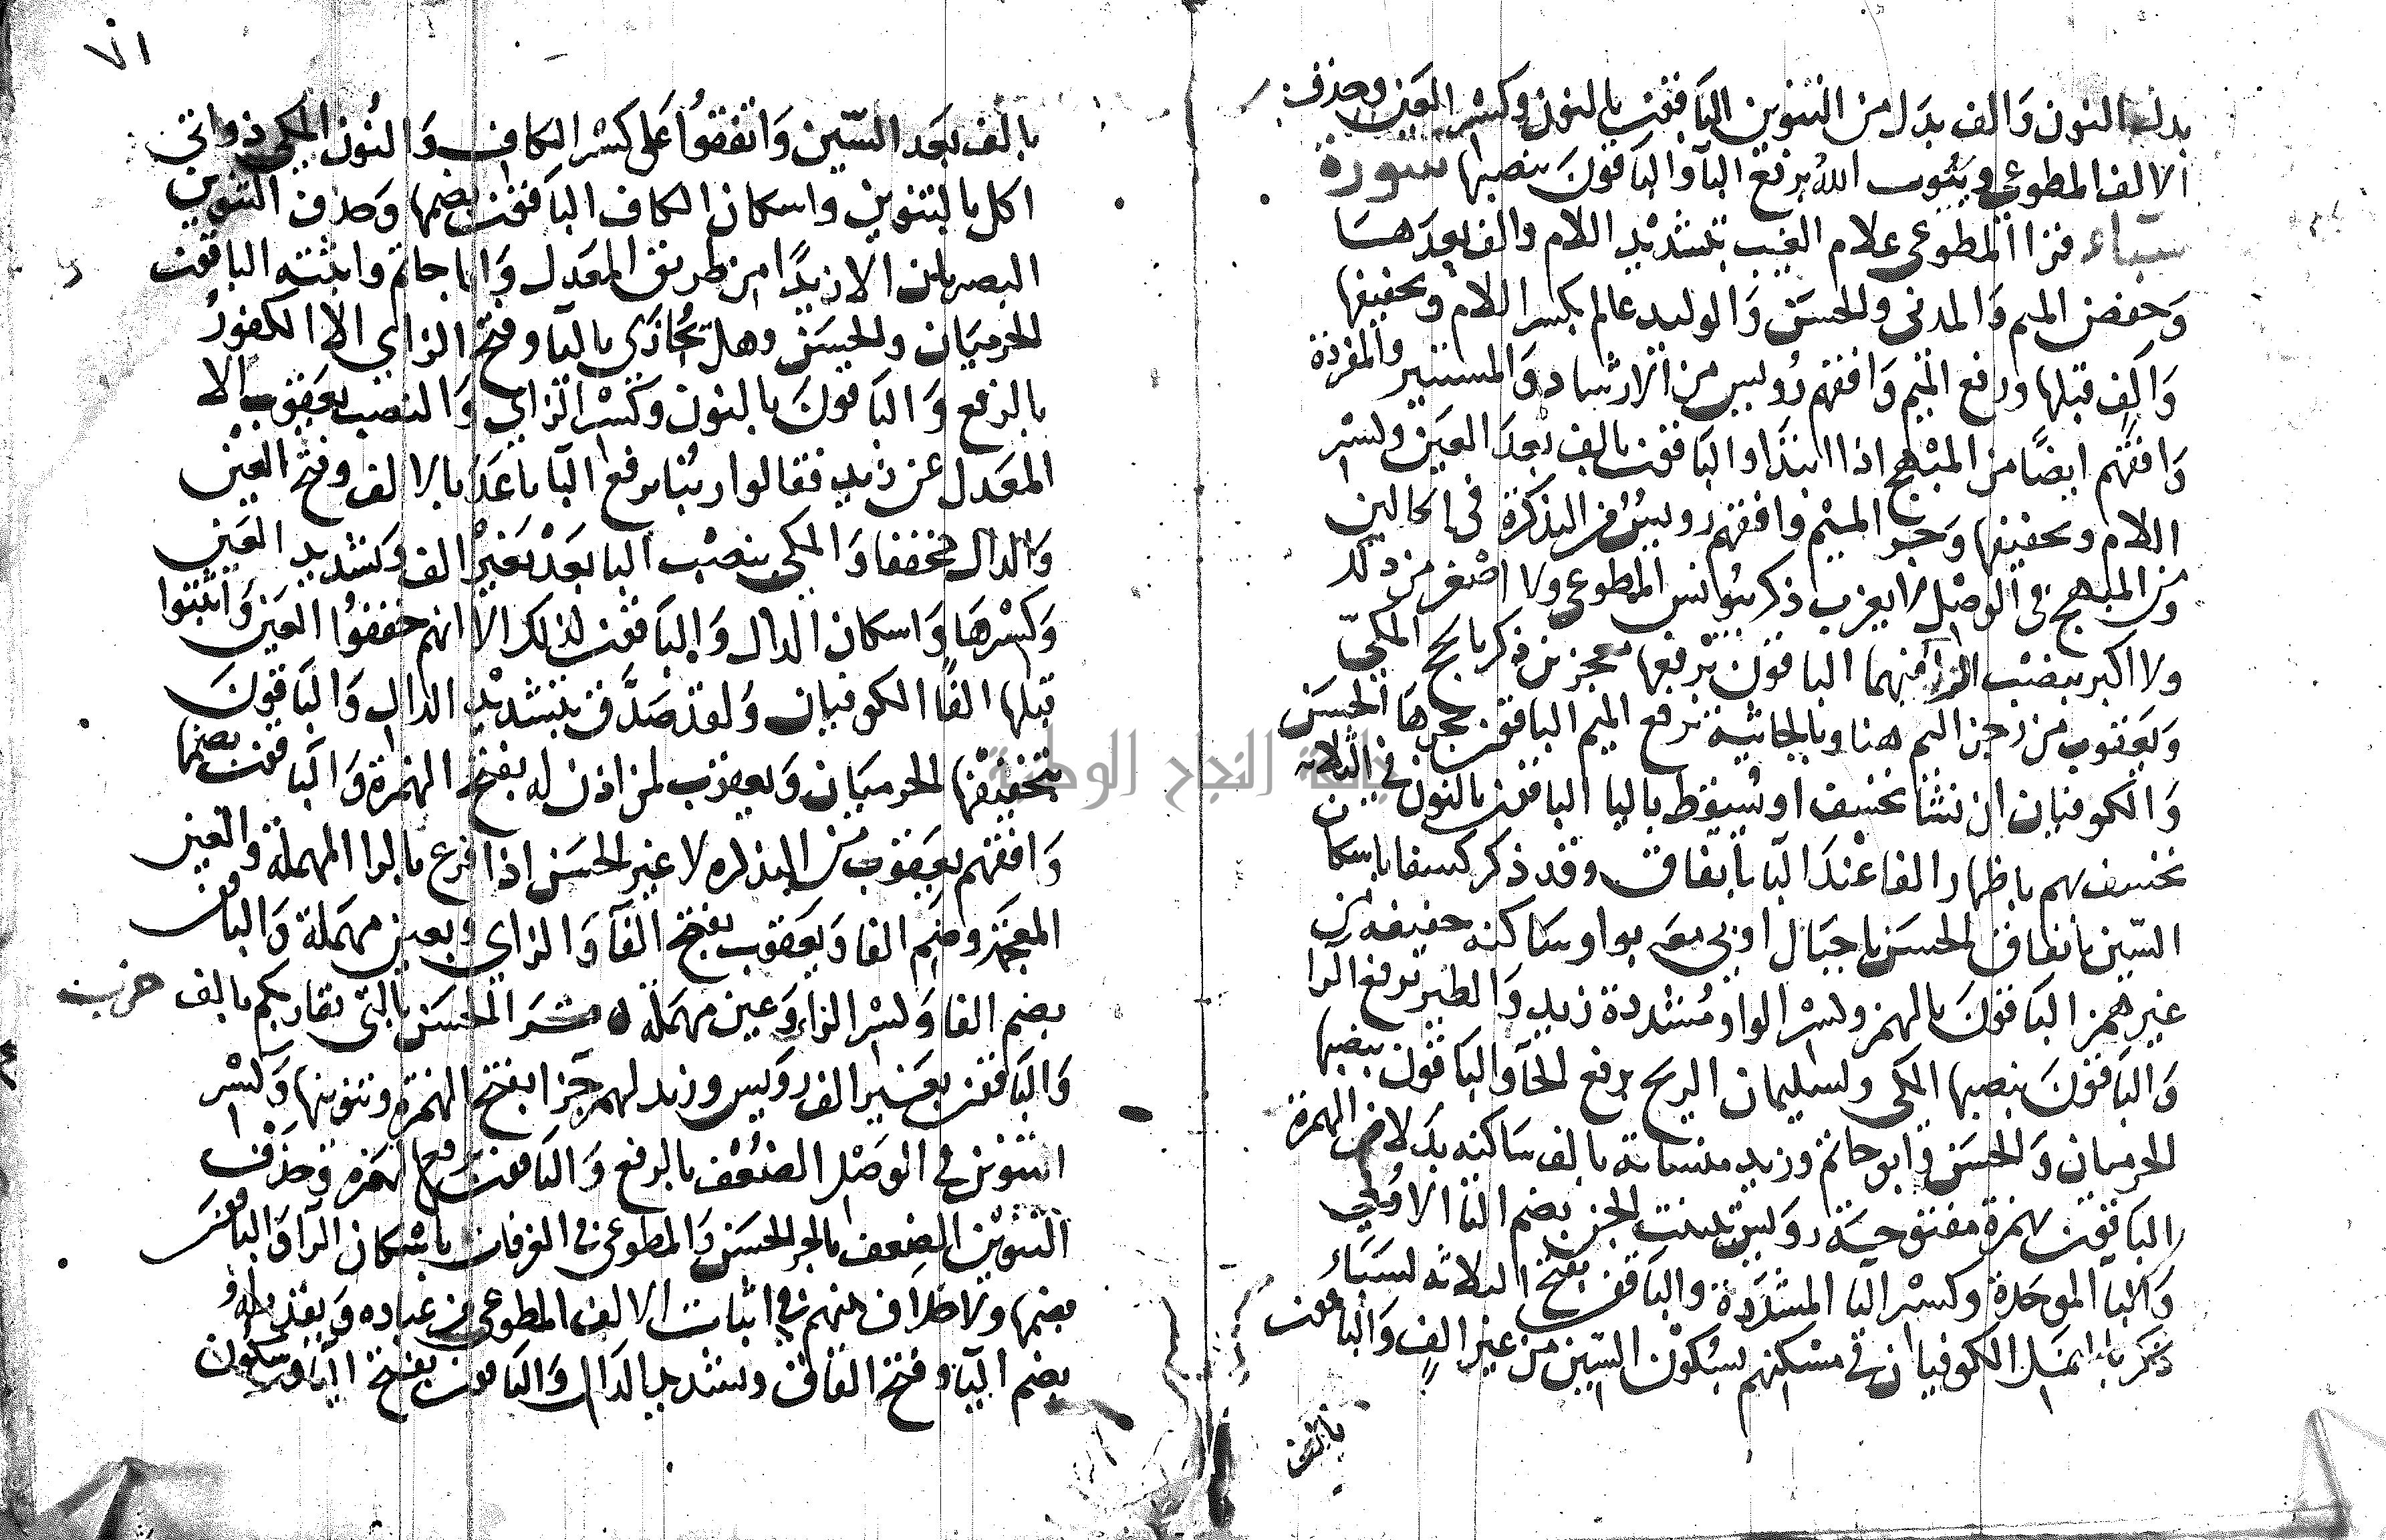 بدل النون والف بدل من التنوين الباقون بالنون وكسر العين وحذف
الالف المطوعي ويتوب الله برفع البا والباقون بنصبها سورة
سباء قرا المطوعي علام الغيب بتشديد اللام والف بعدها
وخفض الميم والمدني والحسن والوليد عالم بكسر اللام وتخفيفها
والف قبلها ورفع الميم وافقهم رويس من الارشاد والمستنير والمفردة
وافقهم ايضا من المبهج اذا ابتدا والباقون بالف بعد العين وكسر
اللام وتخفيفها وجر الميم وافقهم رويس من التذكرة في الحالين
ومن المبهج في الوصل لا يعزب ذكر بيونس المطوعي ولا اصغر من ذلك
ولا اكبر بنصب الرا منهما الباقون برفعها معجزين ذكر بالحج المكي
ويعقوب من رجز اليم هنا وبالجاثية برفع الميم الباقون بجرها الحسن
والكوفيان ان نشا نخسف او نسقط باليا الباقون بالنون في الثلاثة
نخسف بهم باظهار الفا عند البا باتفاق وقد ذكر كسفا باسكان
السين باتفاق الحسن يا جبال اوبي معه بواو ساكنه خفيفه من
غير همز الباقون بالهمز وكسر الواو مشددة زيد والطير برفع الرا
والباقون بنصبها المكي ولسليمان الريح برفع الحا والباقون بنصبها
الحرميان والحسن وابو حاتم وزيد منساته بالف ساكنه بدلا من الهمزة
الباقون بهمزة مفتوحة رويس تبينت الجن بضم التا الاولى
والبا الموحدة وكسر اليا المشددة والباقون بفتح الثلاثه لسباء
ذكر بالنمل الكوفيان في مسكنهم بسكون السين من غير الف والباقون
بالف
٧١
بالف بعد السين واتفقوا على كسر الكاف والنون المكي ذواتي
اكل بالتنوين واسكان الكاف الباقون بضمها وحذف التنوين
البصريان الا زيدا من طريق المعدل وابا حاتم واثبته الباقون
الحرميان والحسن وهل يجازى باليا وفتح الزاي الا الكفور
بالرفع والباقون بالنون وكسر الزاي والنصب يعقوب الا
المعدل عن زيد فقالوا ربنا برفع البا باعد بالالف وفتح العين
والدال مخففا والمكي بنصب البا بعد بغير الف وتشديد العين
وكسرها واسكان الدال والباقون كذلك الا انهم خففوا العين واثبتوا
قبلها الفا الكوفيان ولقد صدق بتشديد الدال والباقون
بتخفيفها الحرميان ويعقوب لمن اذن له بفتح الهمزة والباقون بضمها
وافقهم يعقوب من التذكره لا غير الحسن اذا فرع بالرا المهملة والغين
المعجمة وضم الفا ويعقوب بفتح الفا والزاي وبعين مهملة والباقون
بضم الفا وكسر الزاء وعين مهملة ه مشر الحسن بالتي تقاربكم بالف حزب
والباقون بغير الف رويس وزيد لهم جزا بفتح الهمزة وتنوينها وكسر
التنوين في الوصل الضعف بالرفع والباقون برفع الهمزه وحذف
التنوين الضعف بالجر الحسن والمطوعي في الغرفات باسكان الرا والباقون
بضمها ولا خلاف عنهم في اثبات الالف المطوعي من عباده ويقدر له
بضم اليا وفتح القاف وتشديد الدال والباقون بفتح اليا وسكون